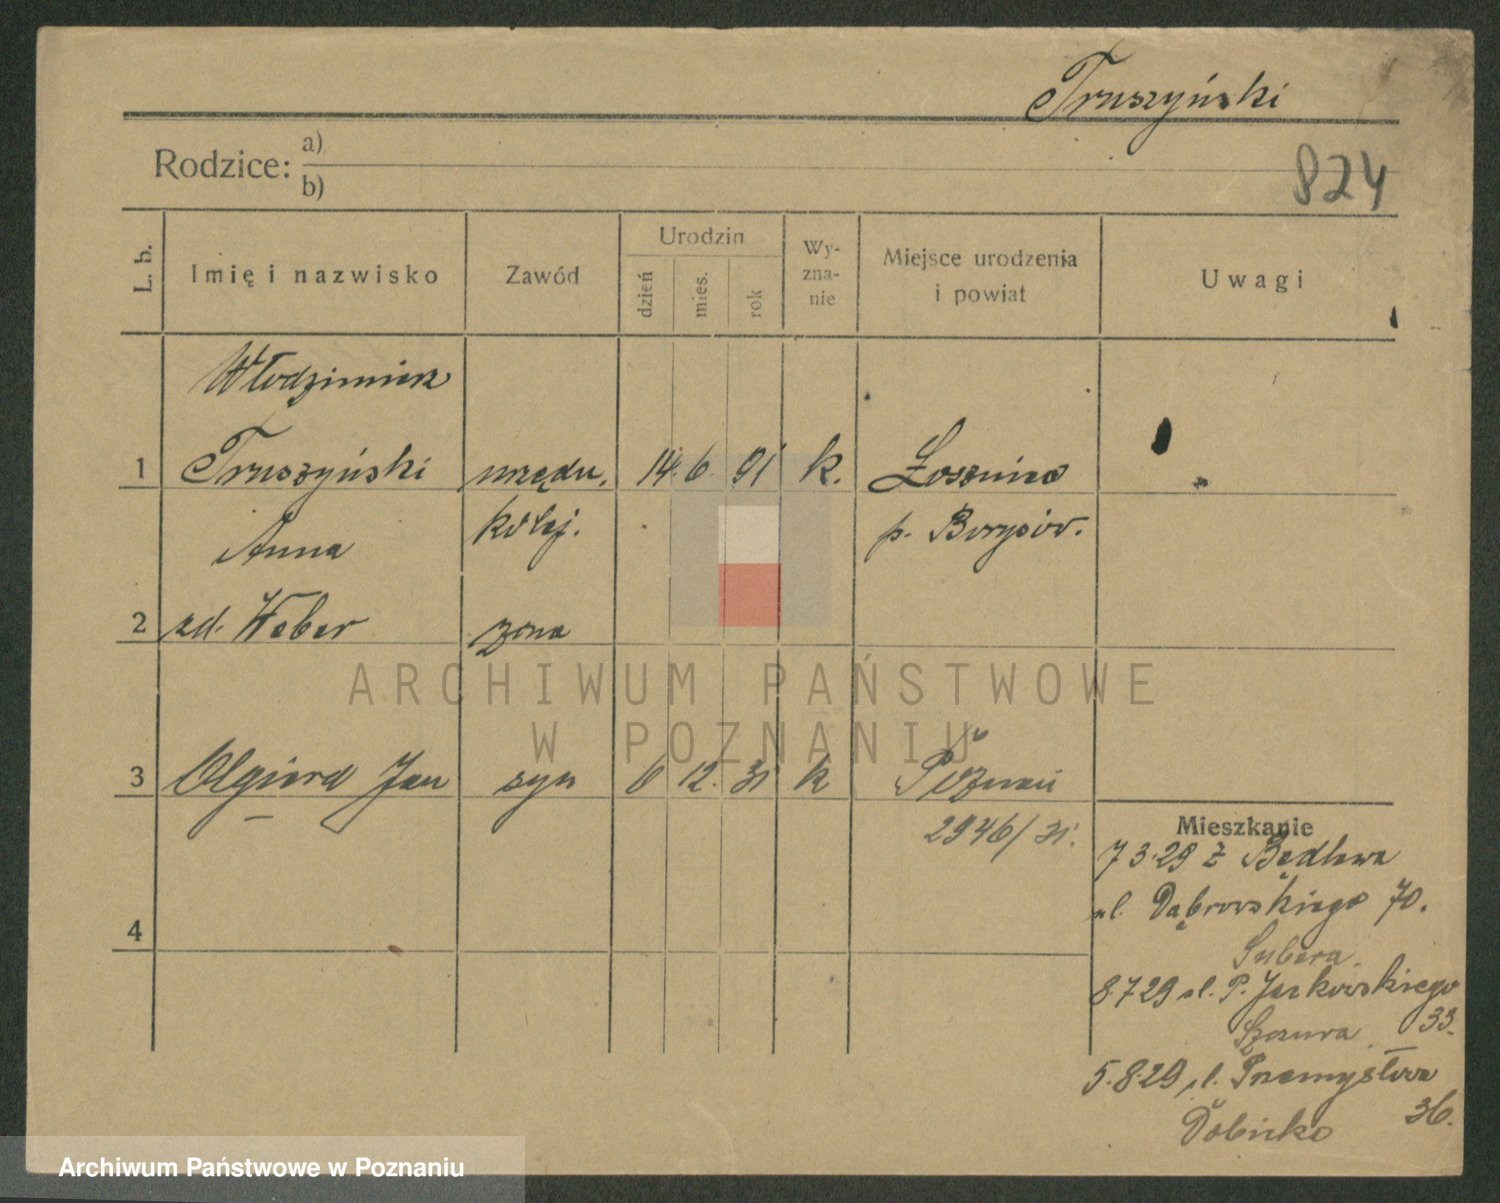 Truszyński
824
Rodzice: a)
b)
L. b.
Imię i nazwisko
Zawód
Urodzin
dzień
mies.
rok
Wy-
zna-
nie
Miejsce urodzenia
i powiat
Uwagi
Włodzimierz
1 Truszyński urzędn. 14 6 91 k. Łosznica
kolej. p. Borysów.
Anna
2 zd. Weber żona
3 Olgierd Jan syn 6 12. 31 k Poznań
2946/31.
4
Mieszkanie
7 3.29 z Będlewa
ul. Dąbrowskiego 70.
Subera
8.7 29 ul. P. Jackowskiego
33.
5.8.29 ul. Przemysłowa
36.
ARCHIWUM PAŃSTWOWE
W POZNANIU
Archiwum Państwowe w Poznaniu